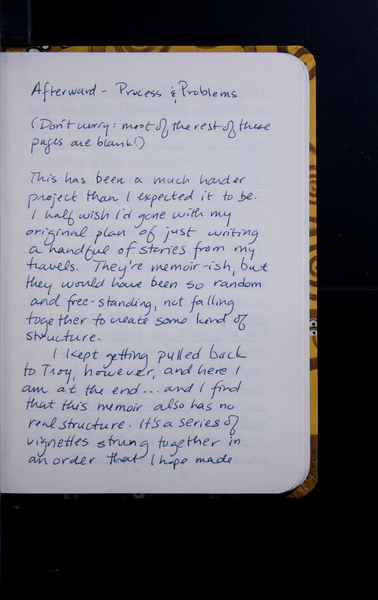 Afterward - Process & Problems
(Don't worry: most of the rest of these
pages are blank!)
This has been a much harder
project than I expected it to be.
I half wish I'd gone with my
original plan of just writing
a handful of stories from my
travels. They're memoir-ish, but
they would have been so random
and free-standing, not falling
together to create some kind of
structure.
I kept getting pulled back
to Troy, however, and here I
am at the end... and I find
that this memoir also has no
real structure. It's a series of
vignettes strung together in
an order that I hope made